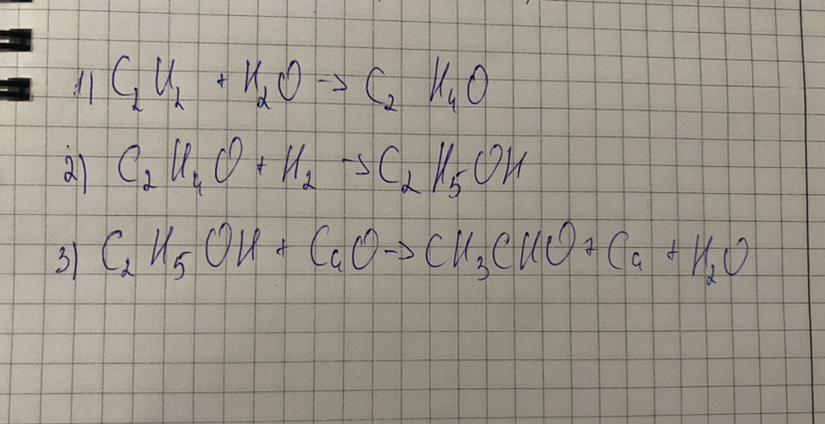 1) C₂H₂ + H₂O → C₂ H₄O
2) C₂H₄O + H₂ → C₂H₅OH
3) C₂H₅OH + CaO → CH₃CHO + Ca + H₂O